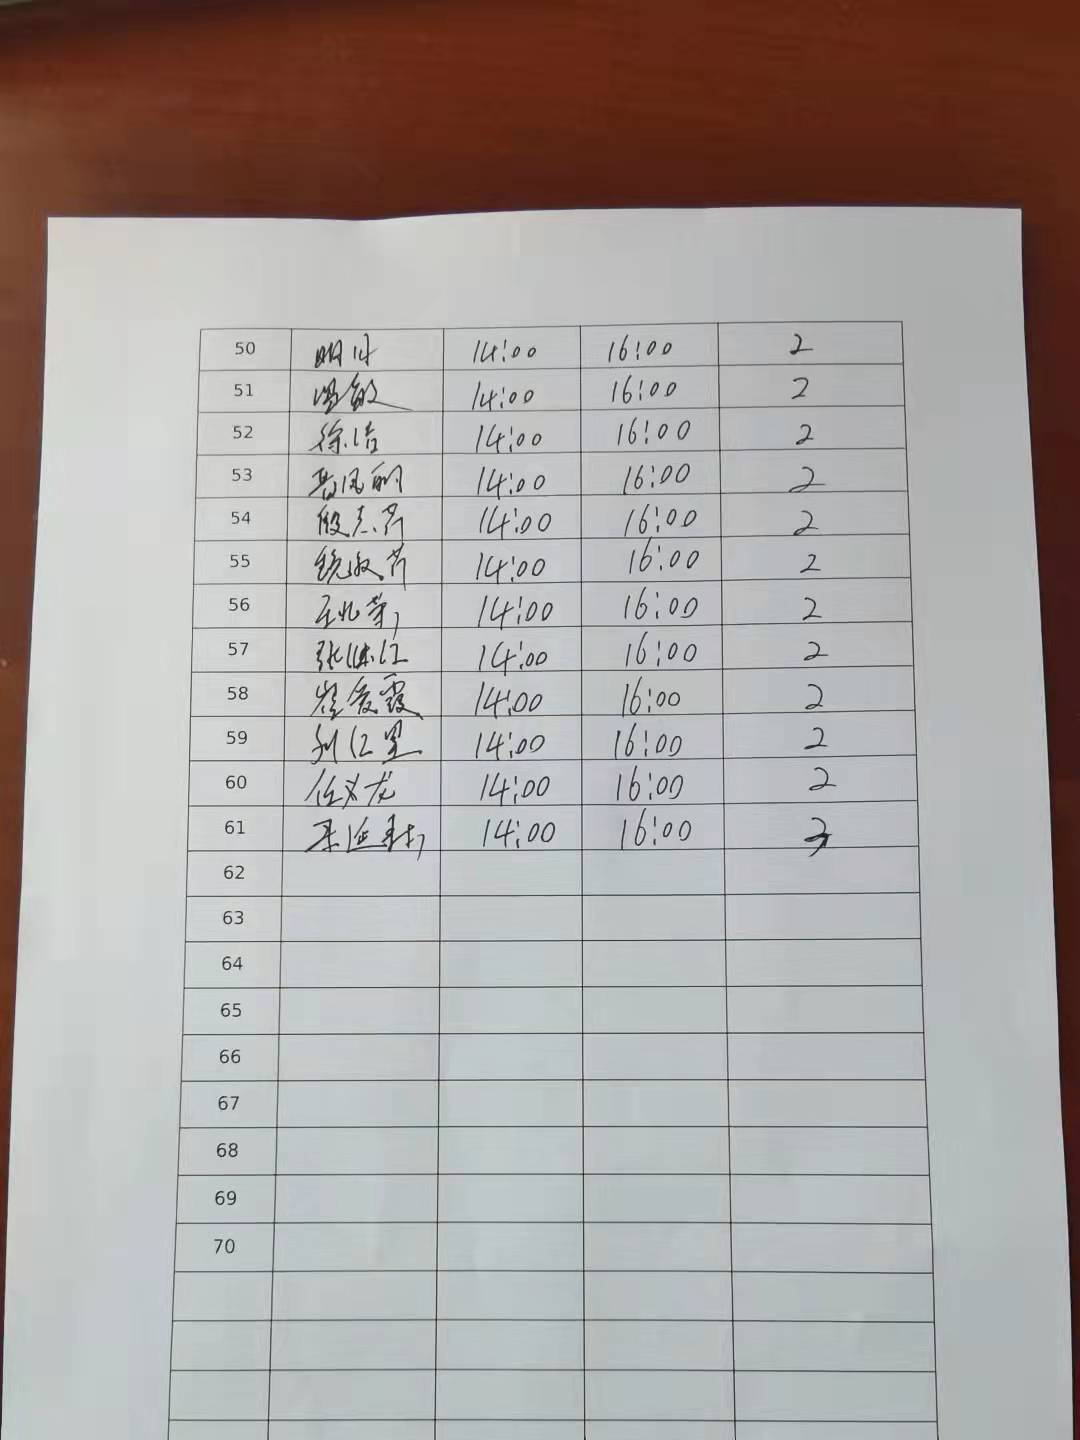 50 14:00 16:00 2
51 温敏 14:00 16:00 2
52 徐洁 14:00 16:00 2
53 凤丽 14:00 16:00 2
54 殷志芹 14:00 16:00 2
55 饶淑芹 14:00 16:00 2
56 14:00 16:00 2
57 张继红 14:00 16:00 2
58 崔爱霞 14:00 16:00 2
59 刘红星 14:00 16:00 2
60 任义龙 14:00 16:00 2
61 14:00 16:00 2
62
63
64
65
66
67
68
69
70